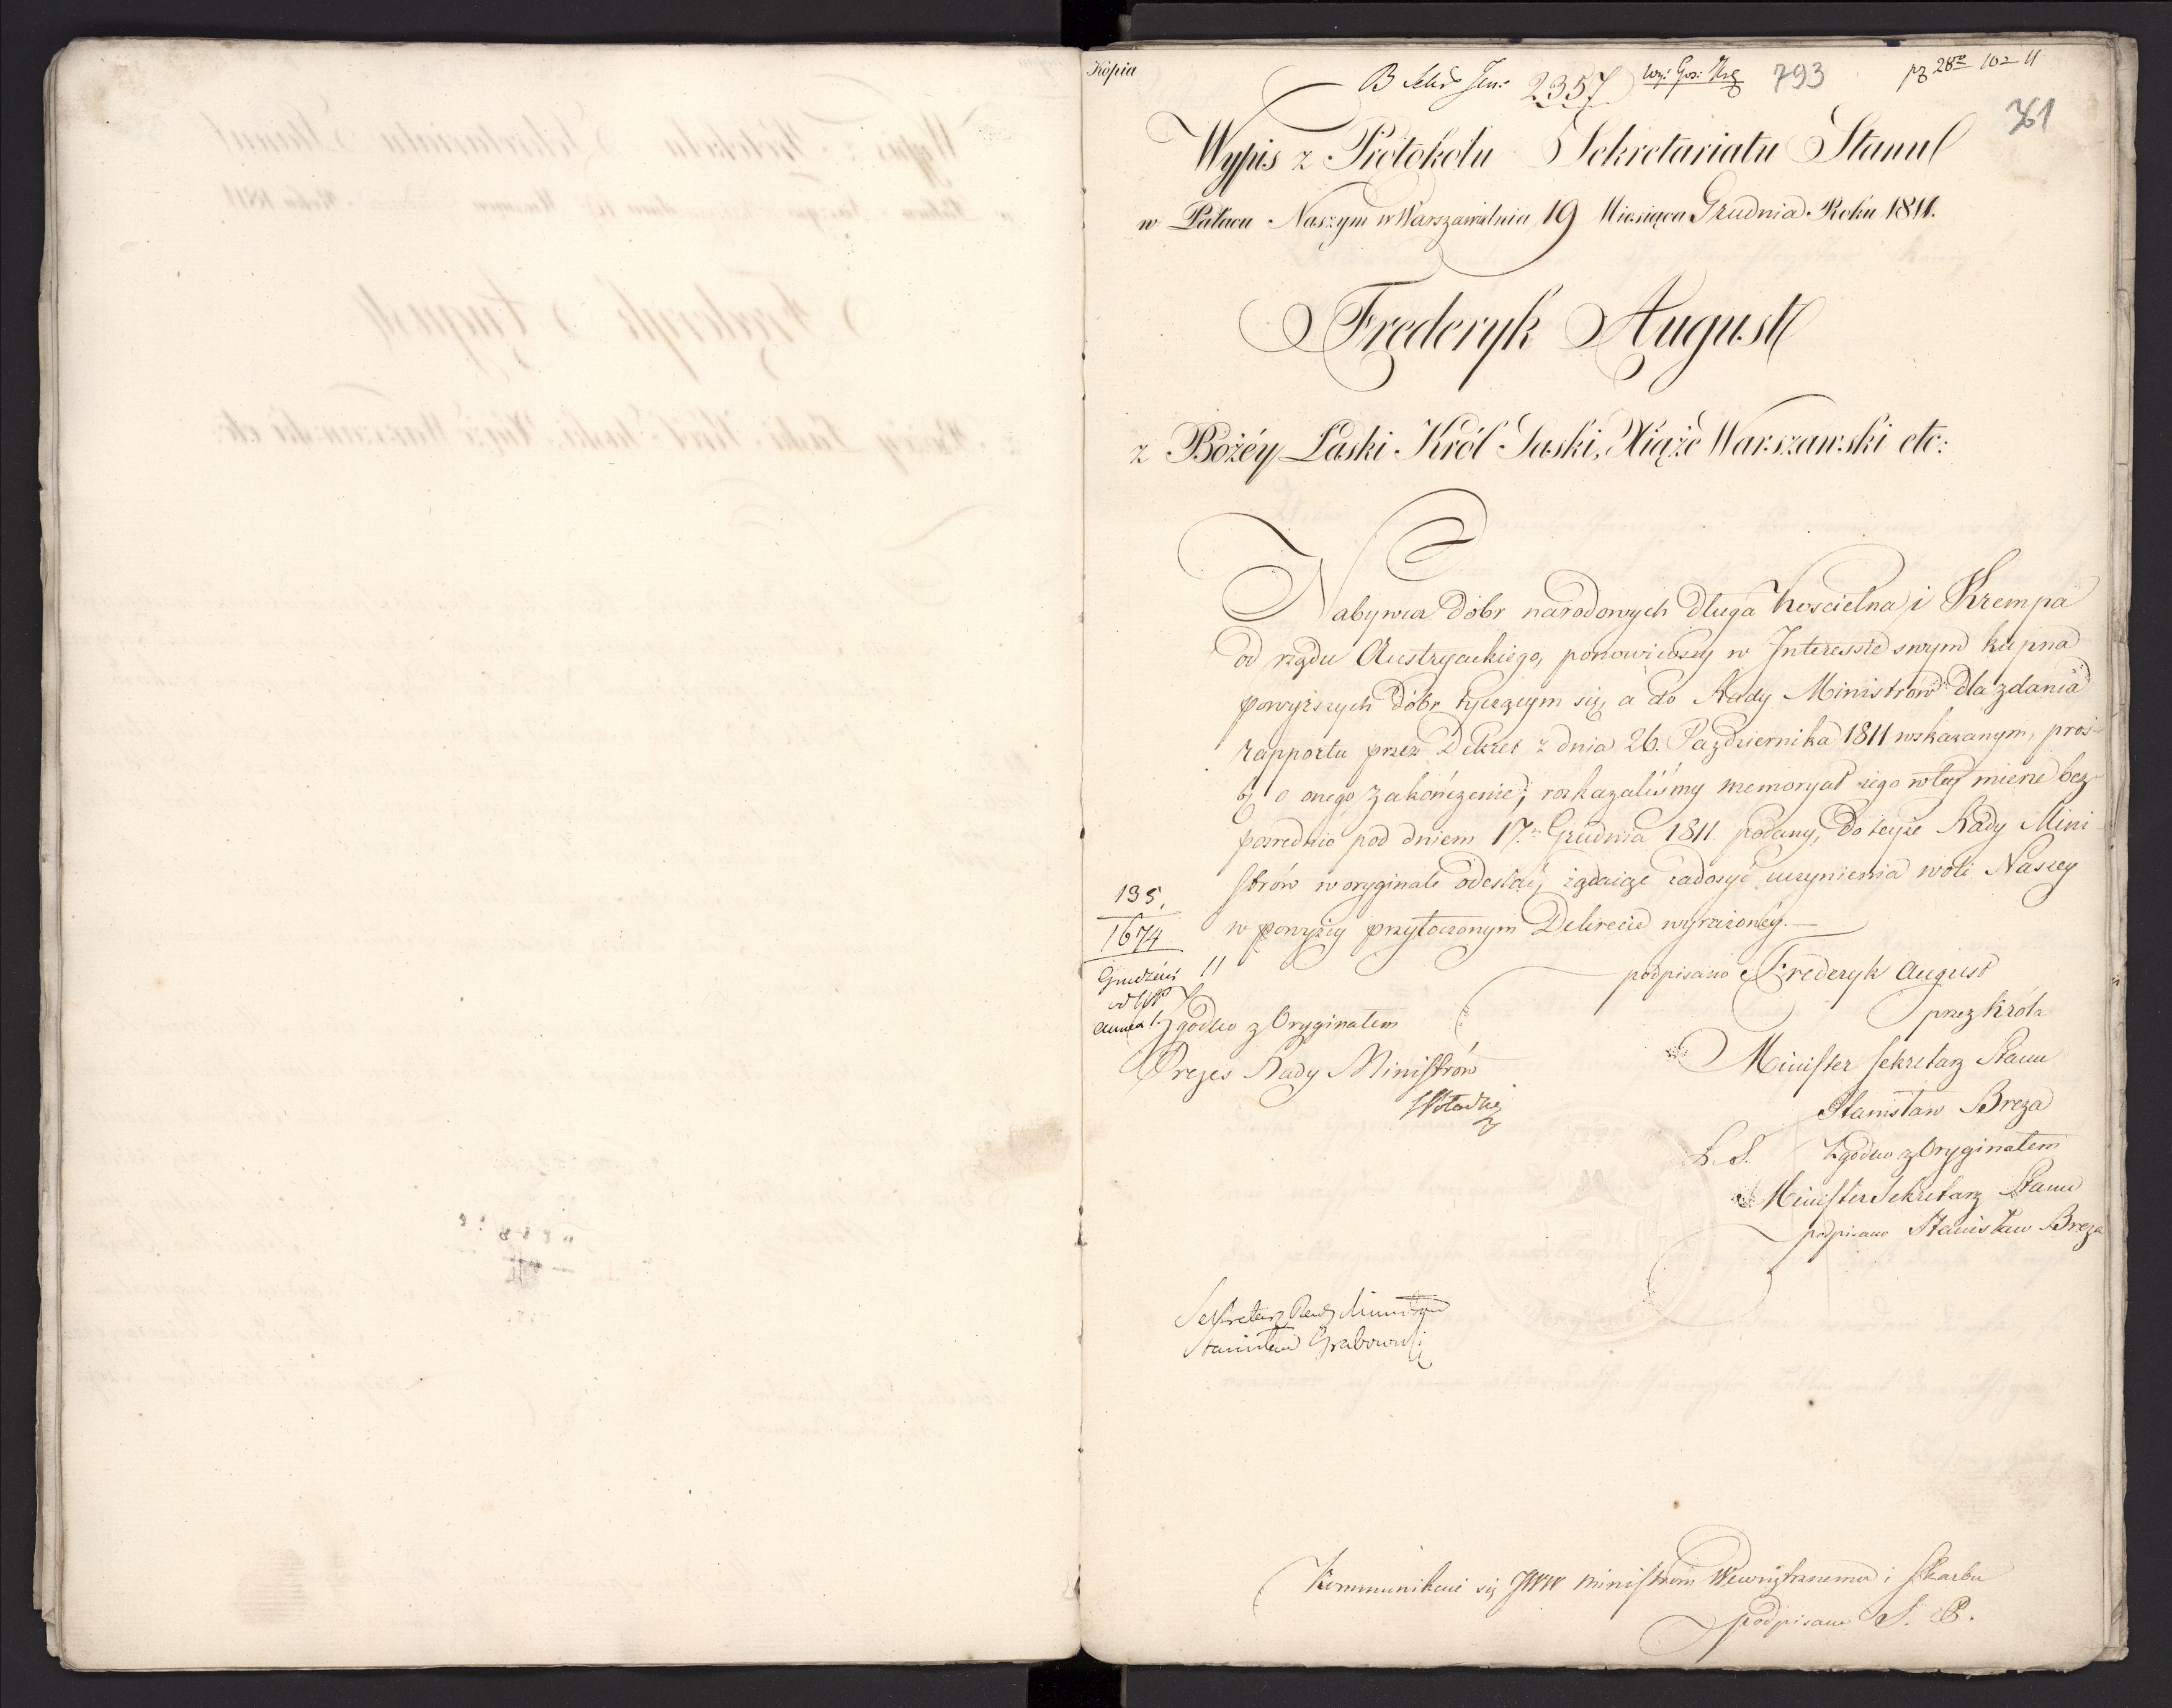 Kopia
B Sekr Jen: 2357 793
28 10 11
361
Wypis z Protokołu Sekretariatu Stanu
w Pałacu Naszym w Warszawie dnia 19 Miesiąca Grudnia Roku 1811.
Frederyk August
z Bożéy Łaski Król Saski, Xiąże Warszawski etc:
Nabywca dóbr narodowych Długa Kościelna i Krempa
od rządu Austryackiego, ponowiwszy w Interessie swym kupna
powyższych dóbr tyczącym się, a do Rady Ministrów dla zdania
rapportu przez Dekret z dnia 26. Pazdziernika 1811 wskazanym, proś-
by o onego zakończenie; roskazaliśmy memoryał iego w tey mierze bez-
pośrednio pod dniem 17. Grudnia 1811. podany, do teyże Rady Mini-
strów w oryginale odesłać, żądaiąc zadosyć uczynienia woli Naszey
w powyżey przytoczonym Dekrecie wyrażonéy.—
195.
1674
Grudzień 11
podpisano Frederyk August
przez Króla
Zgodno z Oryginałem
Minister Sekretarz Stanu
Prezes Rady Ministrów
Stanisław Breza
L. S. Zgodno z Oryginałem
Minister Sekretarz Stanu
podpisano Stanisław Breza
Sekretarz Rady Ministrów
Stanisław Grabowski
Kommunikuie się JWW Ministrom Wewnętrznemu i Skarbu
podpisano S. B.